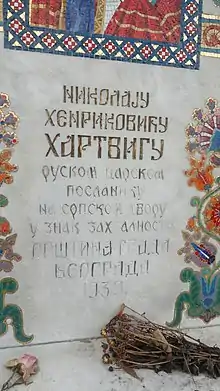 НИКОЛАЈУ
ХЕНРИКОВИЋУ
ХАРТВИГУ
руском царском
посланику
на српском двору
у знак захвалности
општина града
Београда